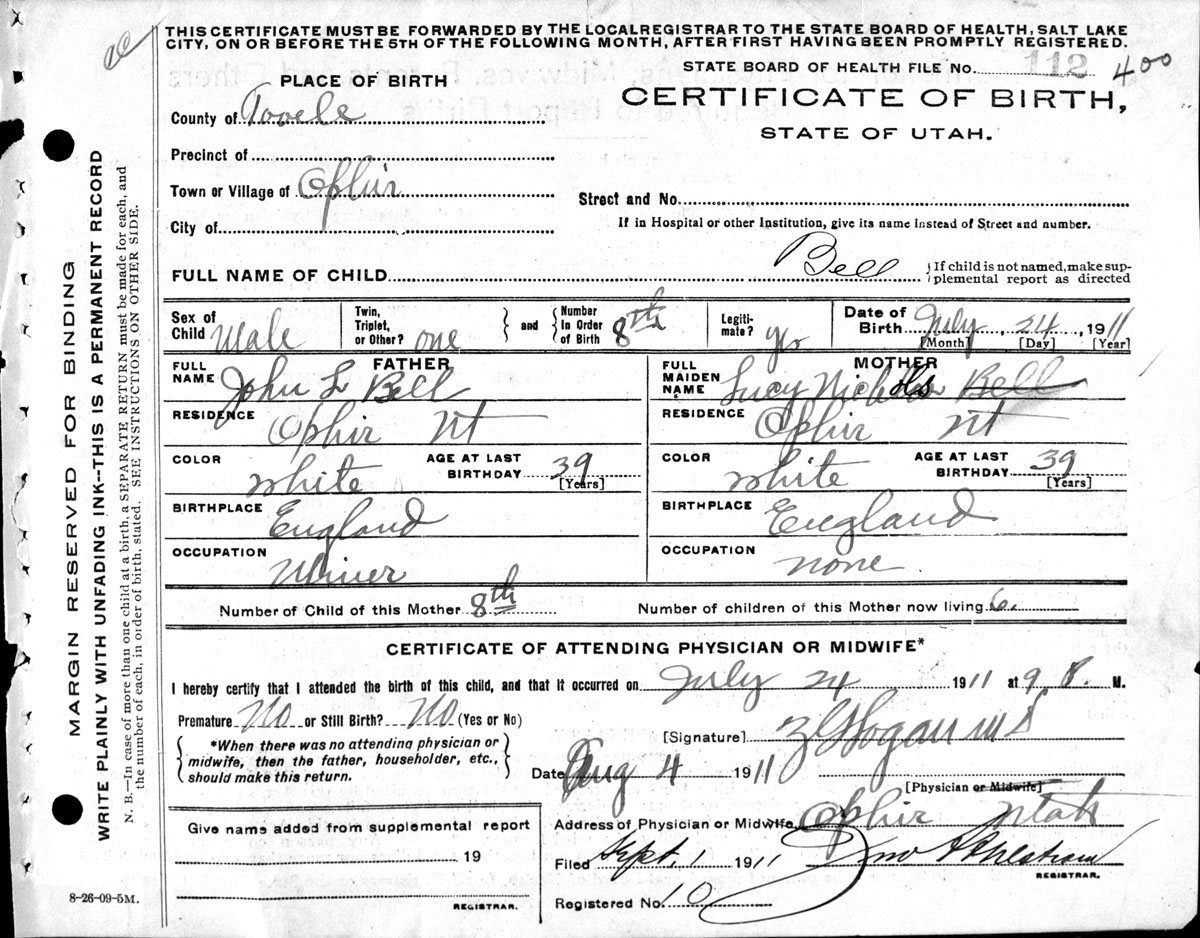 THIS CERTIFICATE MUST BE FORWARDED BY THE LOCAL REGISTRAR TO THE STATE BOARD OF HEALTH, SALT LAKE
CITY, ON OR BEFORE THE 5TH OF THE FOLLOWING MONTH, AFTER FIRST HAVING BEEN PROMPTLY REGISTERED.
STATE BOARD OF HEALTH FILE No. 112 400
PLACE OF BIRTH
CERTIFICATE OF BIRTH,
STATE OF UTAH.
County of Tooele
Precinct of
Town or Village of Ophir
Street and No.
City of
If in Hospital or other Institution, give its name instead of Street and number.
FULL NAME OF CHILD Bell {If child is not named, make sup-
plemental report as directed
Sex of Child Male
Twin, Triplet, or Other? one } and { Number in Order of Birth 8th
Legiti-mate? yes
Date of Birth July, 24, 1911
[Month] [Day] [Year]
FATHER
FULL NAME John L Bell
RESIDENCE Ophir Ut
COLOR white AGE AT LAST BIRTHDAY 39 [Years]
BIRTHPLACE England
OCCUPATION Miner
MOTHER
FULL MAIDEN NAME Lucy Nicholls Bell
RESIDENCE Ophir Ut
COLOR white AGE AT LAST BIRTHDAY 39 [Years]
BIRTHPLACE England
OCCUPATION none
Number of Child of this Mother 8th Number of children of this Mother now living 6.
CERTIFICATE OF ATTENDING PHYSICIAN OR MIDWIFE*
I hereby certify that I attended the birth of this child, and that it occurred on July 24 1911 at 9 P. M.
Premature No or Still Birth? No (Yes or No)
{*When there was no attending physician or
midwife, then the father, householder, etc.,
should make this return.}
[Signature] Hogan MD
Date Aug 4 1911
[Physician or Midwife]
Address of Physician or Midwife Ophir Utah
Filed Sept. 1 1911 Jno Ahlstrom
REGISTRAR.
Registered No. 10
Give name added from supplemental report
19
REGISTRAR.
8-26-09-5M.
MARGIN RESERVED FOR BINDING
WRITE PLAINLY WITH UNFADING INK--THIS IS A PERMANENT RECORD
N. B.—In case of more than one child at a birth, a SEPARATE RETURN must be made for each, and
the number of each, in order of birth, stated. SEE INSTRUCTIONS ON OTHER SIDE.